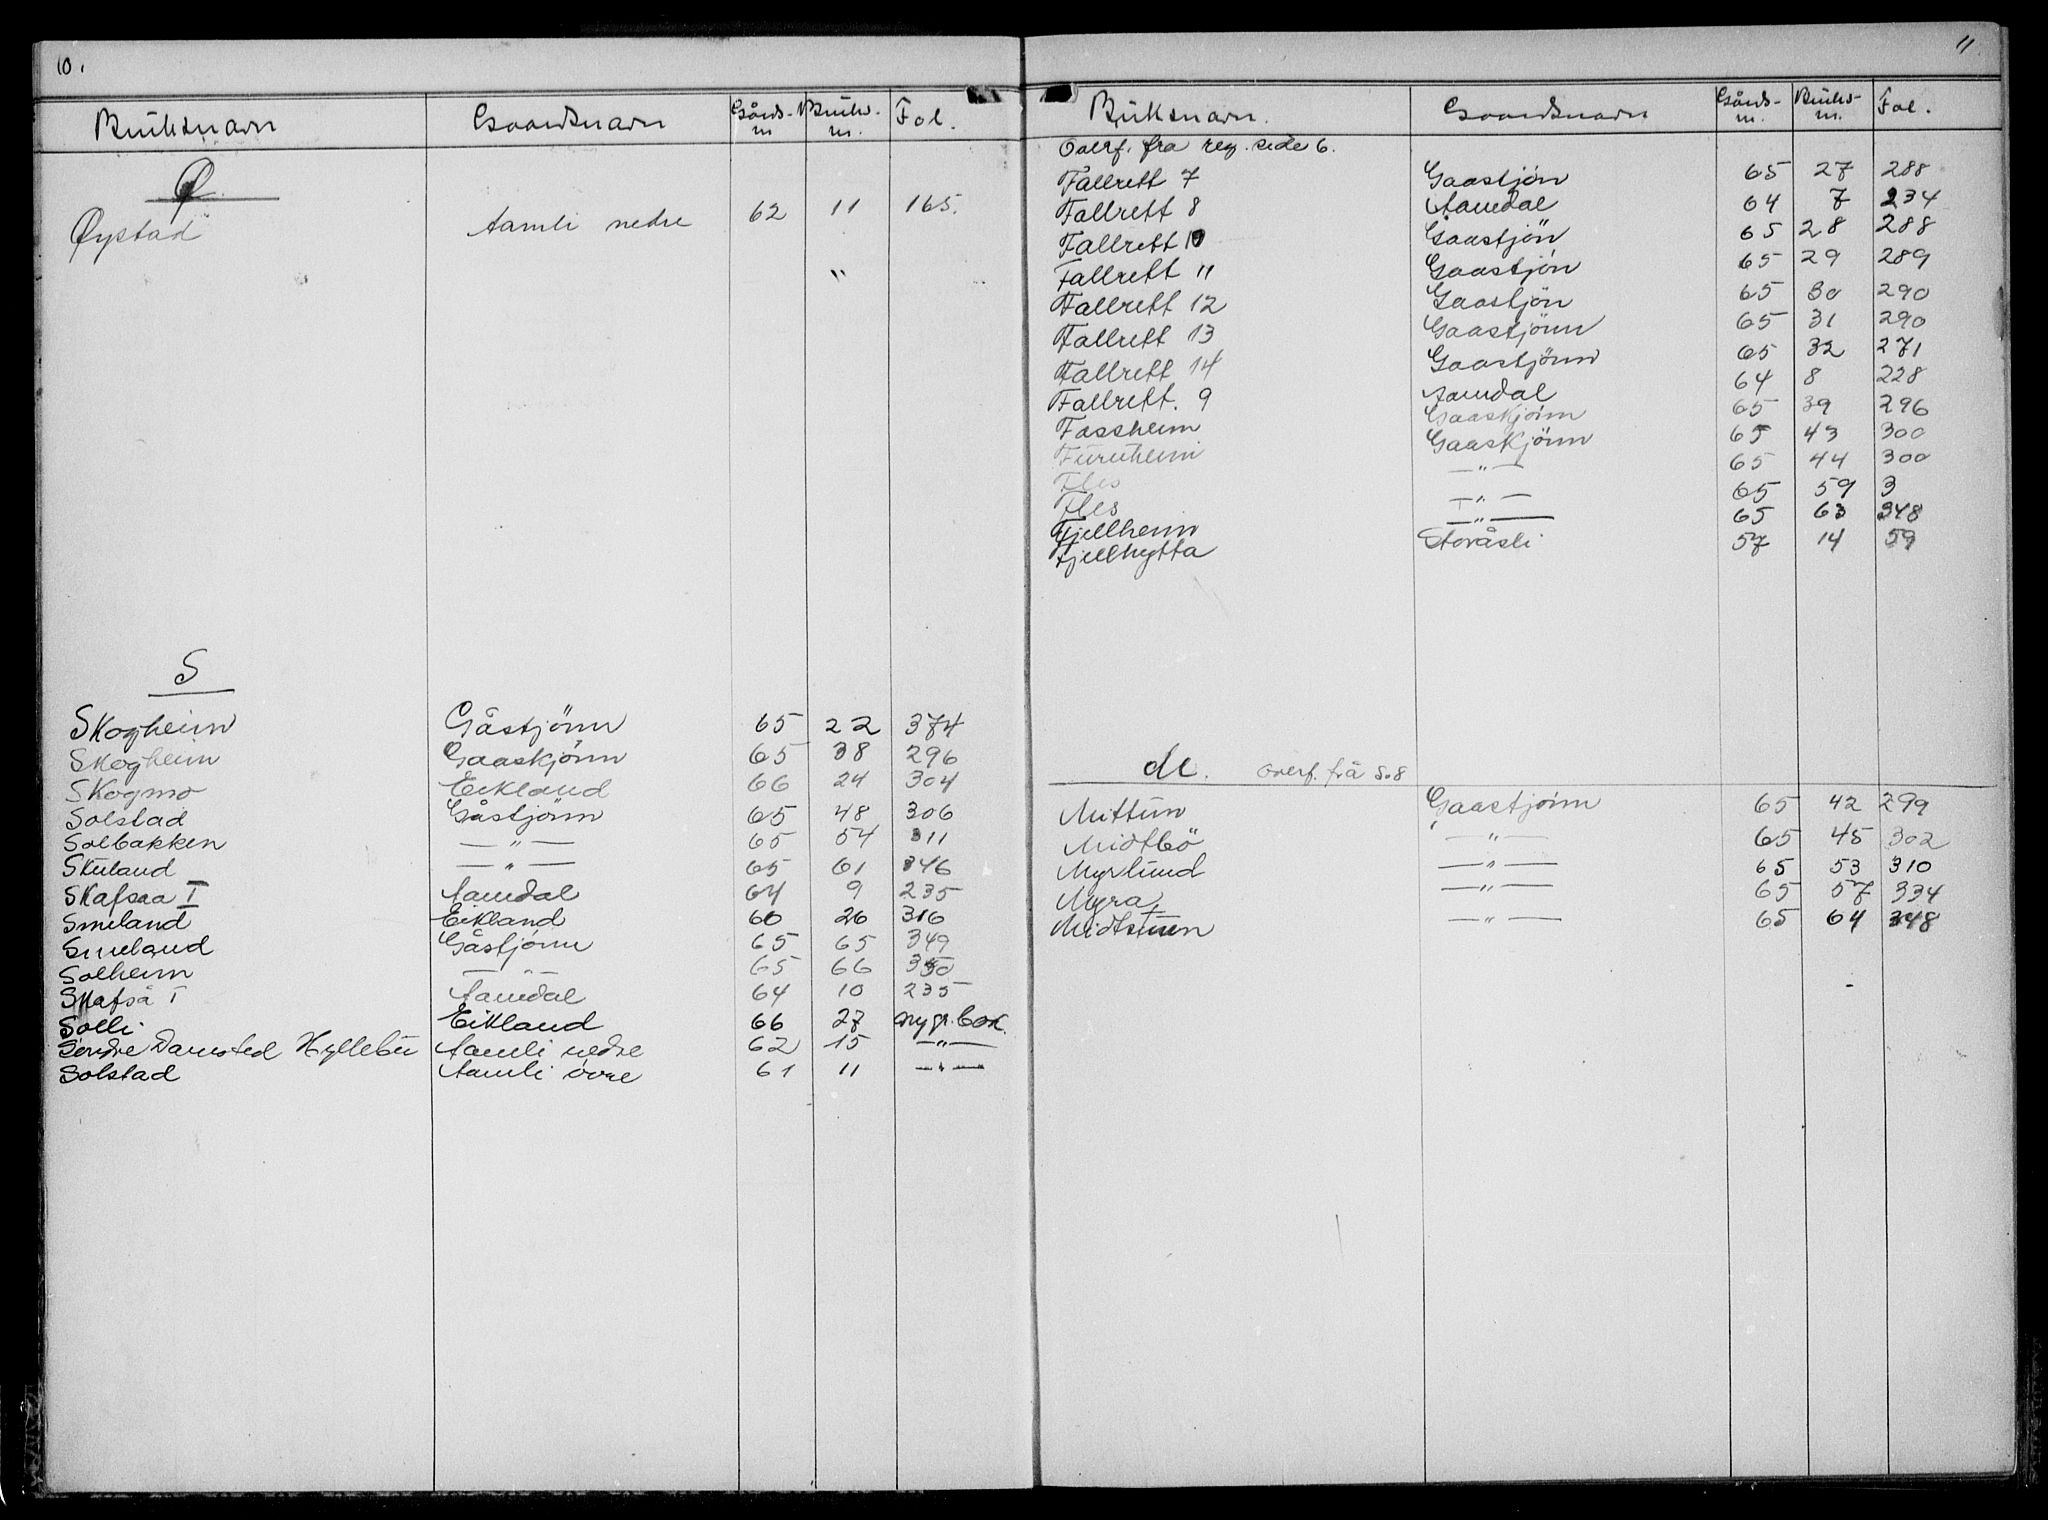 10.
Bruksnavn Gaardsnavn Gårds-nr. Bruks-nr. Fol.
Ø
Øystad Aamli nedre 62 11 165.
"
S
Skogheim Gåstjönn 65 22 374
Skogheim Gaaskjönn 65 38 296
Skogmo Eikland 66 24 304
Solstad Gåstjönn 65 48 306
Solbakken — " — 65 54 311
Skuland — " — 65 61 346
Skafsaa I Aamdal 64 9 235
Smeland Eikland 60 26 316
Smeland Gåstjönn 65 65 349
Solheim — " — 65 66 350
Skafså I Aamdal 64 10 235
Solli Eikland 66 27 ny gr. bok.
Söndre Damsted Hyllebu Aamli nedre 62 15 — " —
Solstad Aamli övre 61 11 — " —
11
Bruksnavn. Gaardsnavn Gårds-nr. Bruks-nr. Fol.
Overf. fra reg. side 6.
Fallrett 7 Gaastjön 65 27 288
Fallrett 8 Aamdal 64 7 234
Fallrett 10 Gaastjön 65 28 288
Fallrett 11 Gaastjön 65 29 289
Fallrett 12 Gaastjön 65 30 290
Fallrett 13 Gaastjönn 65 31 290
Fallrett 14 Gaastjönn 65 32 271
Fallrett. 9 Aamdal 64 8 228
Fossheim Gaaskjönn 65 39 296
Furuheim Gaaskjönn 65 43 300
Fles — " — 65 44 300
Fles — " — 65 59 3
Fjellheim — " — 65 63 348
Fjellhytta Storåsli 57 14 59
M. Overf. frå s. 8
Mittun Gaastjönn 65 42 299
Midtbö — " — 65 45 302
Myrlund — " — 65 53 310
Myra — " — 65 57 334
Midtstuen — " — 65 64 348